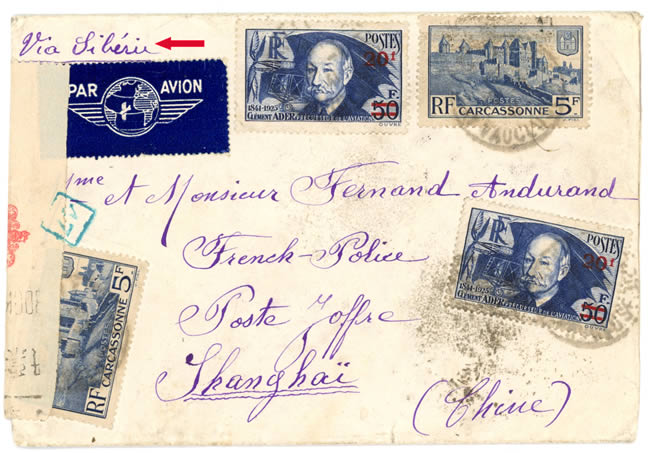 Via Sibérie
PAR AVION
RF POSTES
20f
F.
50
1841-1925
CLÉMENT ADER PRÉCURSEUR DE L'AVIATION
OUVRÉ
POSTES
RF CARCASSONNE 5F
VAUCL
Mme et Monsieur Fernand Andurand
French-Police
Poste Joffre
Shanghaï
(Chine)
RF POSTES
20f
F.
50
1841-1925
CLÉMENT ADER PRÉCURSEUR DE L'AVIATION
RF CARCASSONNE 5F